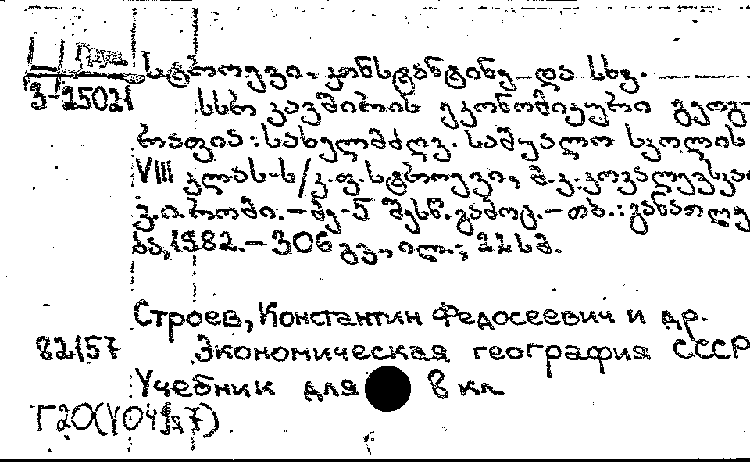 სტროევი, კონსტანტინე და სხვ.
3-25021
სსრ კავშირის ეკონომიკური გეოგ
რაფია: სახელმძღვ. საშუალო სკოლის
VIII კლას-ს/კ.ფ.სტროევი, მ.კ.კოვალევსკა
ვ.ი.რომი.-მე-5 შესწ.გამოც.-თბ.: განათლე
ბა,1982.-306 გვ., ილ.; 22სმ.
Строев, Константин Федосеевич и др.
82157 Экономическая география СССР
Учебник для 8 кл
Г20(У049я7)